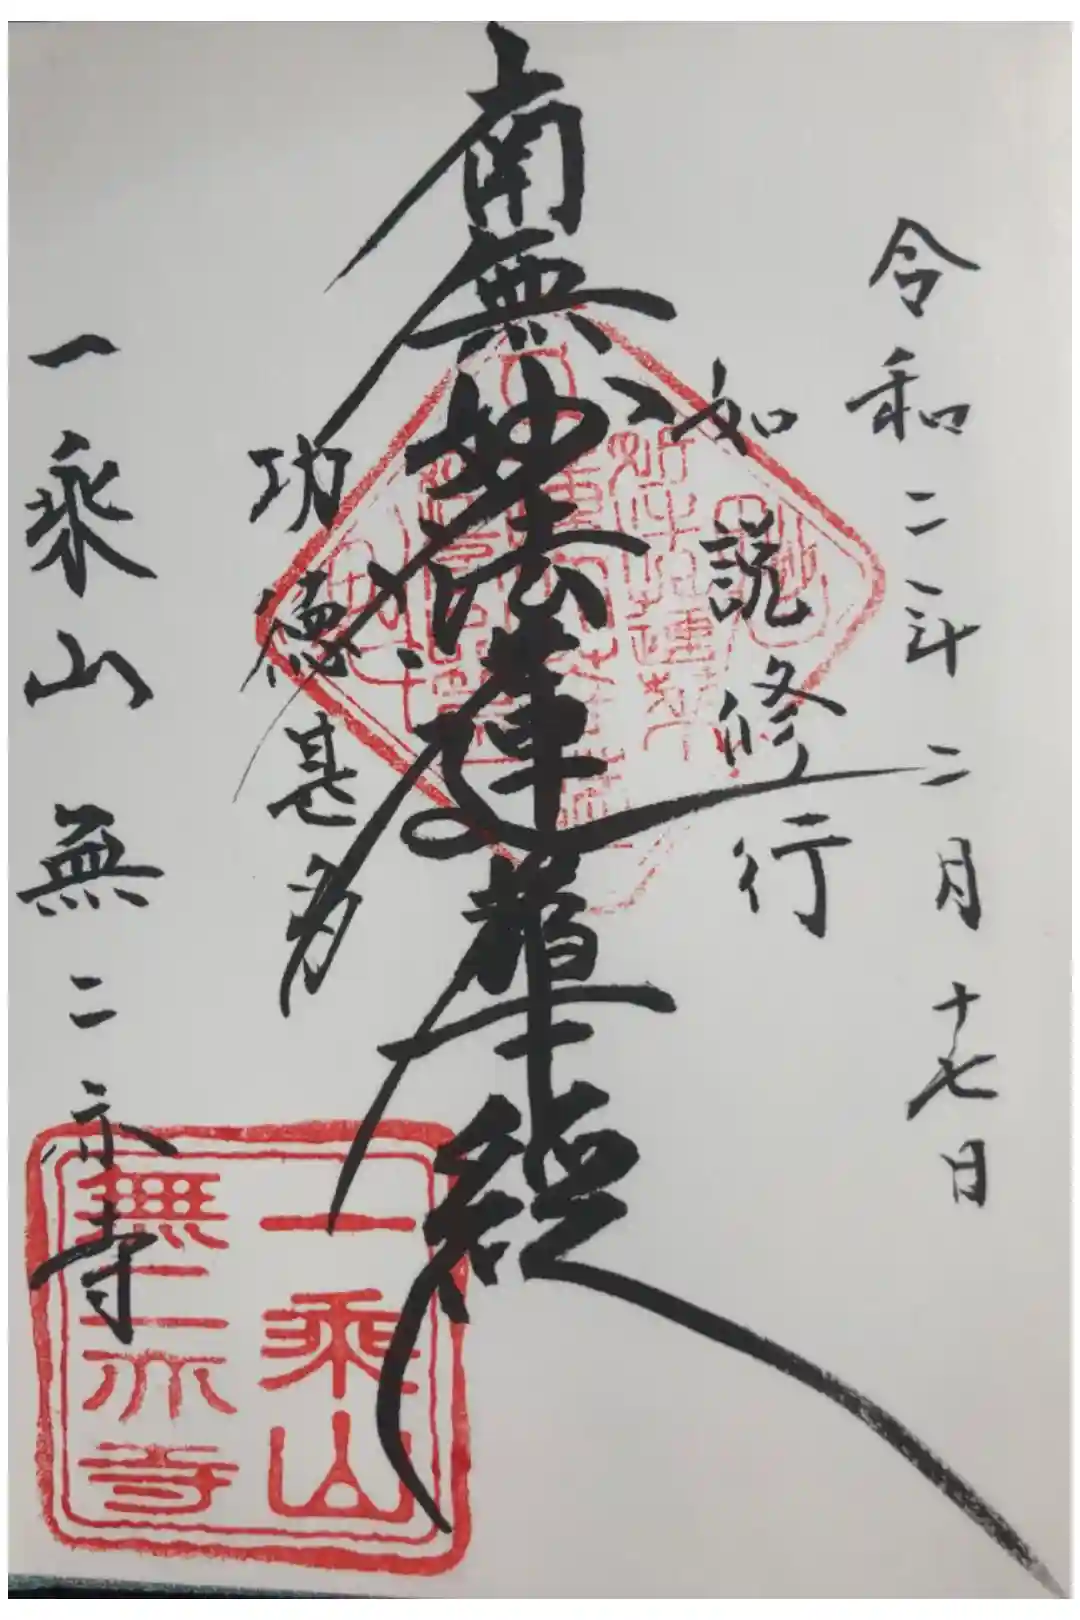 令和二年二月十七日
如説修行
南無妙法蓮華経
功徳甚多
一乘山 無二亦寺
一乘山
無二亦寺